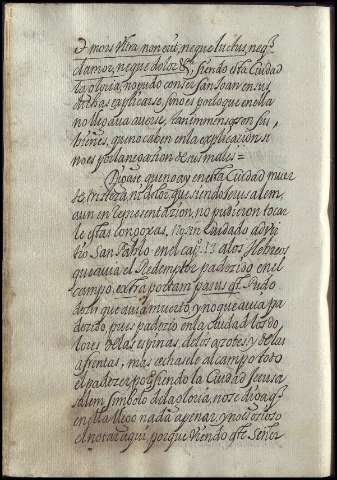 & mors ultra non erit, neque luctus, neqȝ
clamor, neque dolor &, siendo esta Ciudad
la gloria, no pudo con ser San Joan en sus
dichas explicarse, sino es por lo que en ella
no llegava averse, tan immensos son sus
bienes, que no caben en la explicazion si
no es por la negacion de sus males =
Dijose, que no ay en esta Ciudad muer
te, ni tristeza, ni dolor, que siendo Jerusalem,
aun en representazion, no pudieron tocar
le estas congoxas, Non sin Cuidado advir
tio San Pablo en el cap. 13 a los Hebreos
que avia el Redemptor padezido en el
campo, extra portam passus est. Pudo
dezir que avia muerto, y no que avia pa
dezido, pues padezio en la Ciudad los do
lores de las espinas, de los azotes, y de las
afrentas, mas echasele al campo todo
el padezer, porq siendo la Ciudad Jerusa
salem símbolo de la gloria, no se diga qȝ
en ella llego nada apenar, y no es ozioso
el notar aqui, porque viendo este Señor